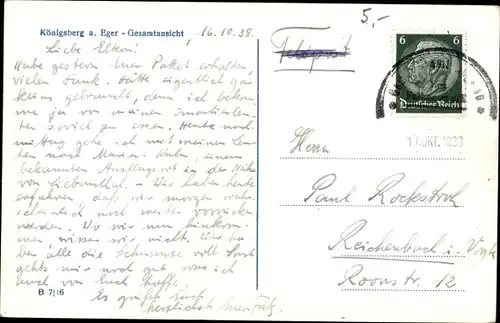 Königsberg a. Eger - Gesamtansicht
16.10.38.
5,-
Liebe Eltern!
Habe gestern Euer Paket erhalten,
vielen Dank. Hätte eigentlich gar
keins gebraucht, denn ich bekom-
me ja von meinen Quartiersleu-
ten soviel zu essen. Heute nach-
mittag gehe ich mit meinen Leu-
ten nach Maria einem
bekannten Ausflugsort in der Nähe
von Liebenthal. - Wir haben heute
erfahren, daß wir morgen wahr-
scheinlich noch weiter vorrücken
werden. Wo wir nun hinkom-
men, wissen wir nicht. Wir ha-
ben alle die Schnauze voll. Sonst
gehts mir noch gut was ich
auch von Euch hoffe.
Es grüßt Euch
herzlichst Euer Fritz.
B 7116
Feldpost
6 6
Deutsches Reich
17. OKT. 1938
Herrn
Paul Rockstroh
Reichenbach i. Vogtl.
Roonstr. 12